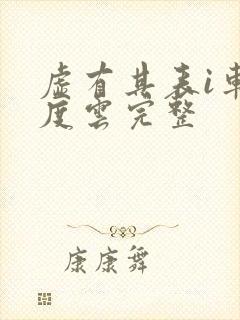 虛有其表i車
度雲完整
康康舞